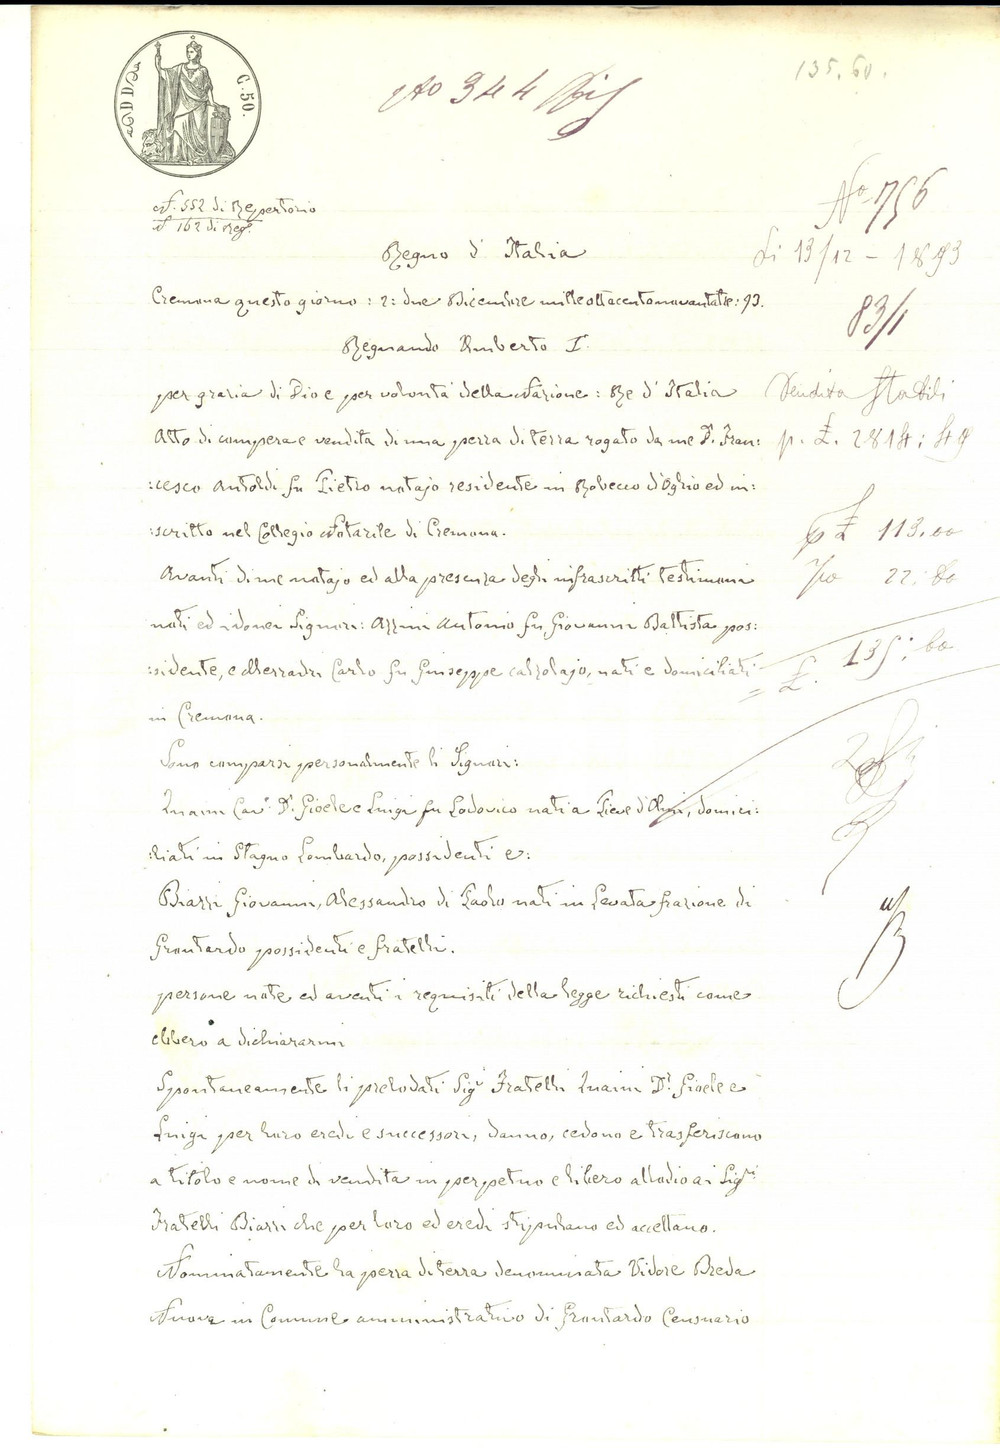 135.60.
No 344
C. 50.
N. 552 di Repertorio
N 162 di Reg.
No 756
Li 13/12 - 1893
83/1
Regno d'Italia
Cremona questo giorno : 2: due Dicembre mille ottocentonovantatre: 93.
Regnando Umberto I.
per grazia di Dio e per volontà della Nazione : Re d'Italia
Atto di compera e vendita di una pezza di terra rogato da me Dr. Fran:
:cesco Antoldi fu Pietro notajo residente in Robecco d'Oglio ed in:
:scritto nel Collegio Notarile di Cremona.
Avanti di me notajo ed alla presenza degli infrascritti testimoni
noti ed idonei Signori: Azzini Antonio fu Giovanni Battista pos:
:sidente, e Merradri Carlo fu Giuseppe calzolajo, nati e domiciliati
in Cremona.
Vendita Stabili
p. £. 2814: 49
£ 113.00
22: 60
£. 135: 60
Sono comparsi personalmente li Signori:
Quaini Cav. Dr. Gioele e Luigi fu Lodovico nati a Pieve d'Olmi, domici:
:liati in Stagno Lombardo, possidenti e:
Biazzi Giovanni, Alessandro di Paolo nati in Levata frazione di
Grontardo possidenti e fratelli.
persone note ed aventi i requisiti della legge richiesti come
ebbero a dichiararmi
Spontaneamente li prelodati Sigi Fratelli Quaini Dr. Gioele e
Luigi per loro eredi e successori, danno, cedono e trasferiscono
a titolo e nome di vendita in perpetuo e libero allodio ai Sigri
Fratelli Biazzi che per loro ed eredi stipulano ed accettano.
Nominatamente la pezza di terra denominata Vidore Breda
Nuova in Comune amministrativo di Grontardo Censuario